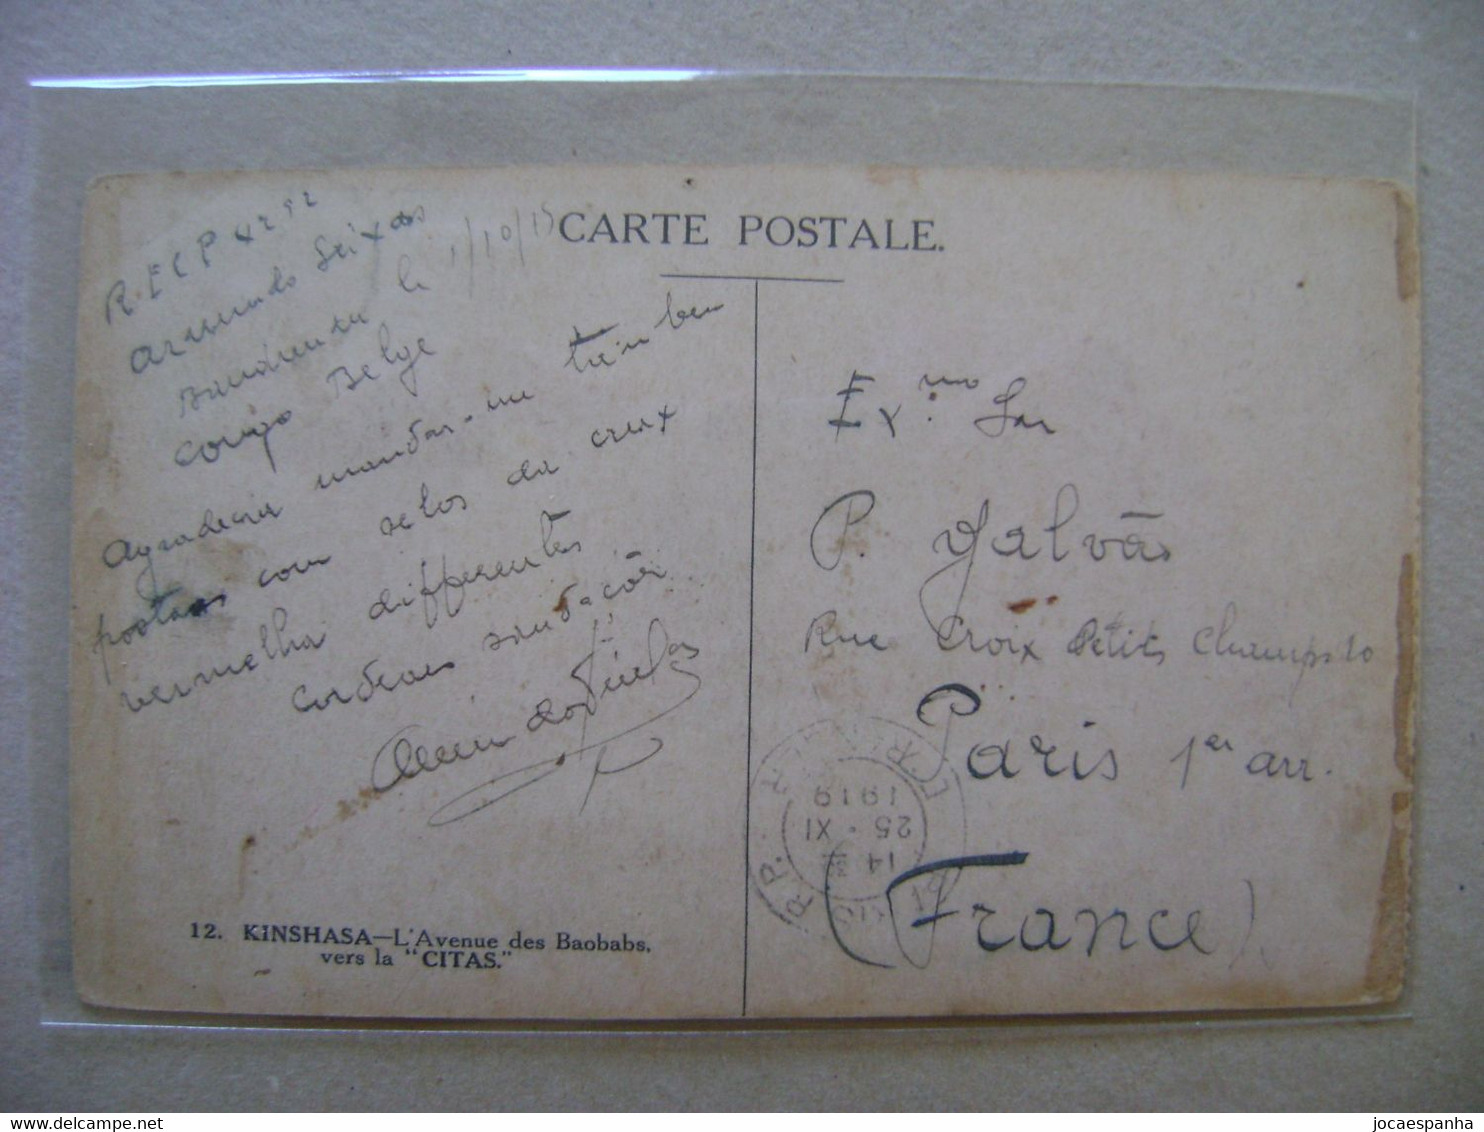 CARTE POSTALE.
Armando Seixas
1/10/19
Congo Belge
Agradecia mandar-me tambem
postaes com selos da crux
vermelha differentes
Cordeaes saudaçõe
Ex.mo Snr
P. Galvão
Rue Croix Petits Champs 10
Paris 1er arr.
(France)
14
25 · XI
1919
12. KINSHASA—L'Avenue des Baobabs,
vers la "CITAS."
jocaespanha